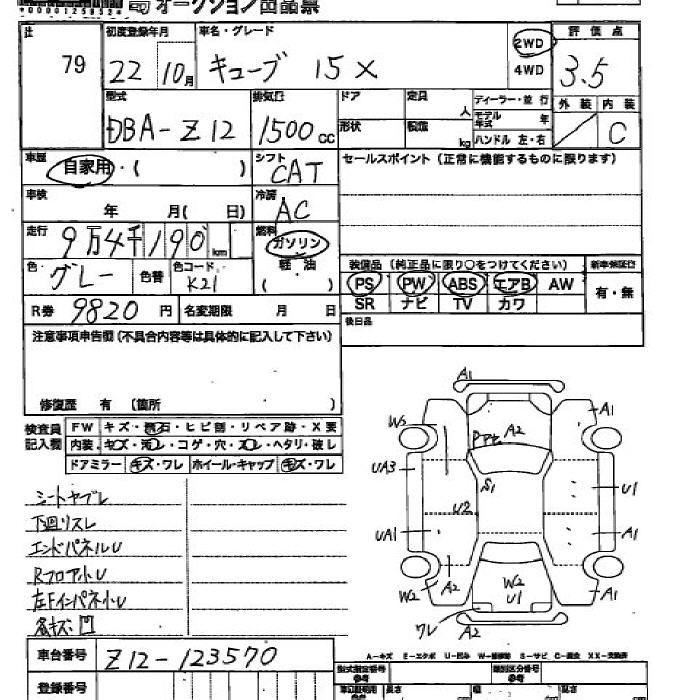 *0000125852*
オークション出品票
79
初度登録年月
車名・グレード
評価点
22 10月
キューブ 15X
2WD
4WD
3.5
型式
排気量
ドア
定員
人
ディーラー・並行
外装 内装
DBA-Z12
1500cc
形状
積載
kg
モデル年式 年
ハンドル 左・右
C
車歴
自家用・( )
シフト
CAT
セールスポイント (正常に機能するものに限ります)
車検
年 月( 日)
冷房
AC
走行
9万4千190km
燃料
ガソリン
軽・油
( )
装備品 (純正品に限り○をつけてください)
新車保証書
色
グレー
色替
色コード
K21
PS PW ABS エアB AW
有・無
SR ナビ TV カワ
R券 9820円
名変期限 月 日
後日品
注意事項申告欄(不具合内容等は具体的に記入して下さい)
修復歴 有 (箇所 )
検査員
記入欄
FW キズ・飛石・ヒビ割・リペア跡・X要
内装 キズ・汚レ・コゲ・穴・スレ・ヘタリ・破レ
ドアミラー キズ・ワレ ホイール・キャップ キズ・ワレ
シートヤブレ
下廻リスレ
エンドパネルU
Rフロア小U
左Fインパネ小U
各キズ凹
A1
W5
A2
A1
UA3
S1
U2
U1
UA1
A1
W2
A2
W2
U1
A1
ワレ
A2
A-キズ E-エクボ U-凹み W-補修跡 S-サビ C-腐食 XX-交換済
車台番号
Z12-123570
登録番号
型式指定番号
参考
類別区分番号
参考
長さ